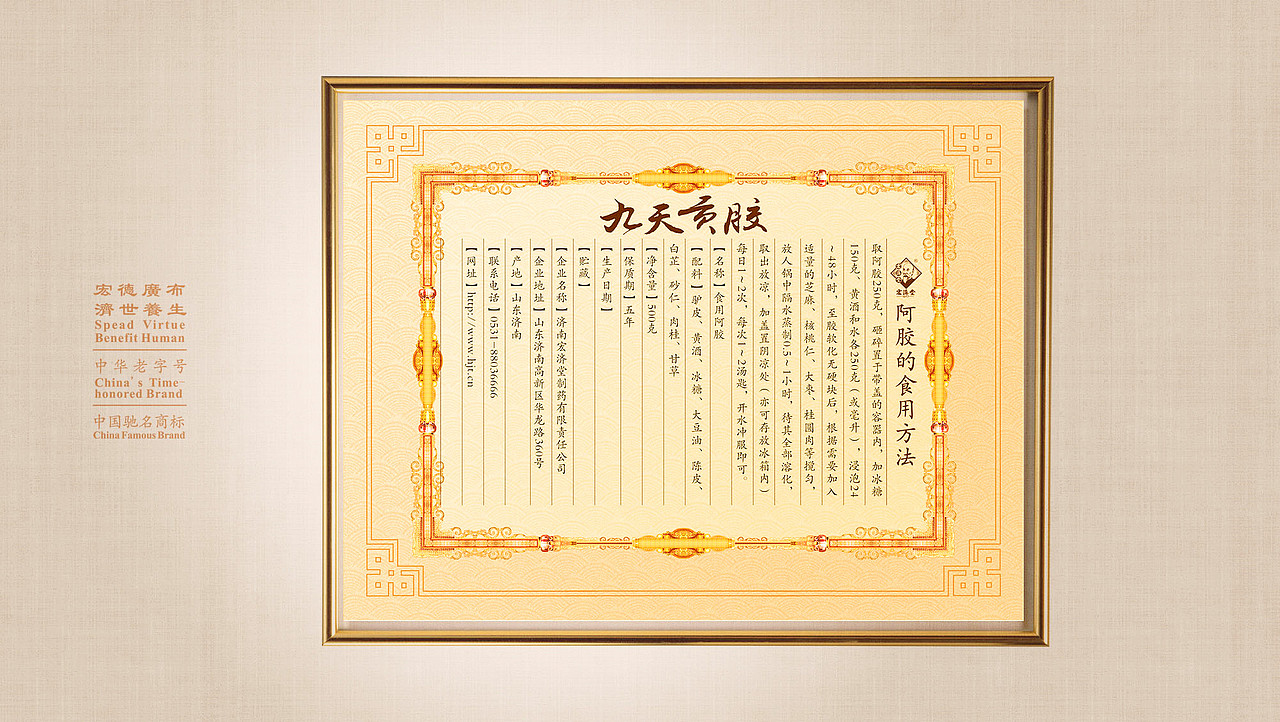 宏德廣布
濟世養生
Spead Virtue
Benefit Human
中华老字号
China's Time-
honored Brand
中国驰名商标
China Famous Brand
九天贡胶
宏济堂
阿胶的食用方法
取阿胶250克，砸碎置于带盖的容器内，加冰糖
150克、黄酒和水各250克（或毫升），浸泡24
~48小时，至胶软化无硬块后，根据需要加入
适量的芝麻、核桃仁、大枣、桂圆肉等搅匀，
放入锅中隔水蒸制0.5~1小时，待其全部溶化，
取出放凉，加盖置阴凉处（亦可存放冰箱内）
每日1~2次，每次1~2汤匙，开水冲服即可。
【名称】食用阿胶
【配料】驴皮、黄酒、冰糖、大豆油、陈皮、
白芷、砂仁、肉桂、甘草
【净含量】500克
【保质期】五年
【生产日期】
【贮藏】
【企业名称】济南宏济堂制药有限责任公司
【企业地址】山东济南高新区华龙路360号
【产地】山东济南
【联系电话】0531-88036666
【网址】http://www.hjt.cn